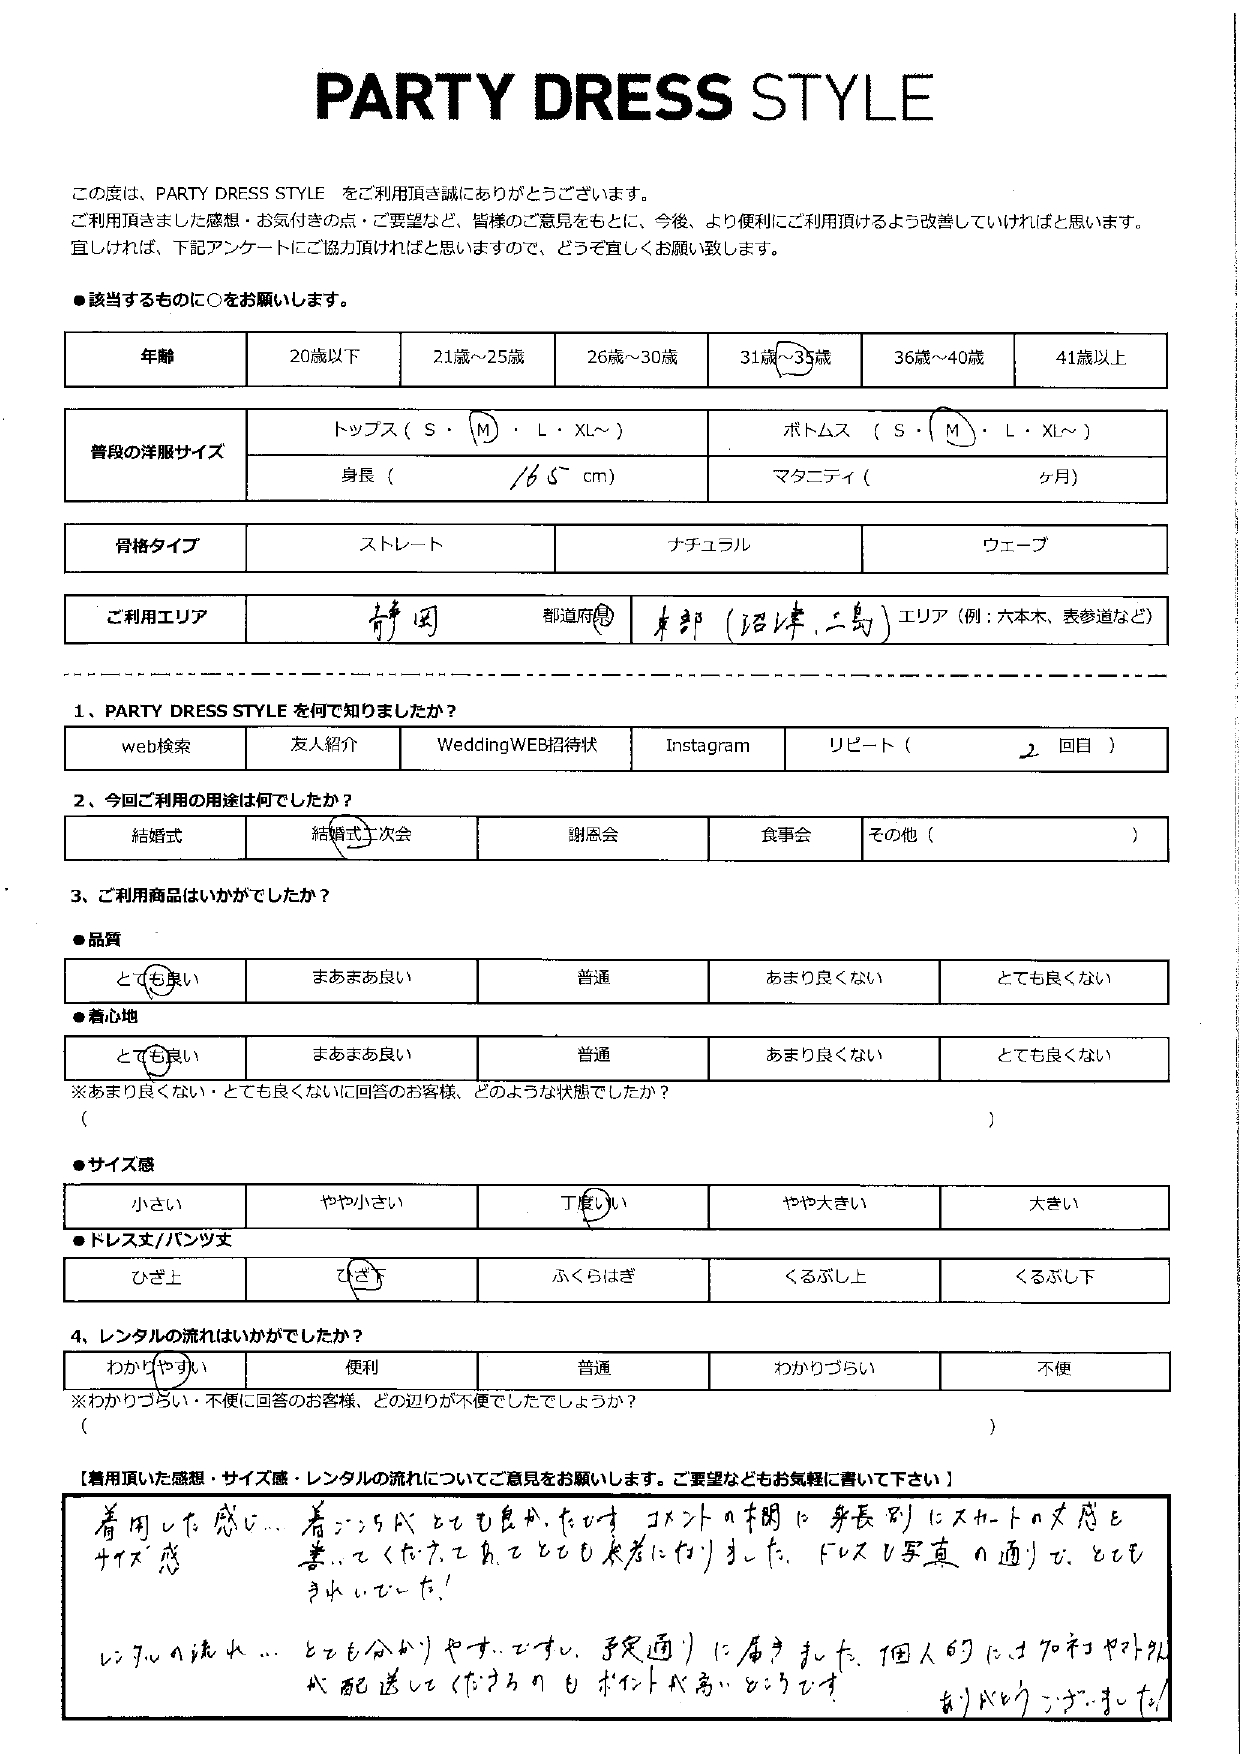 PARTY DRESS STYLE
この度は、PARTY DRESS STYLE をご利用頂き誠にありがとうございます。
ご利用頂きました感想・お気付きの点・ご要望など、皆様のご意見をもとに、今後、より便利にご利用頂けるよう改善していければと思います。
宜しければ、下記アンケートにご協力頂ければと思いますので、どうぞ宜しくお願い致します。
●該当するものに○をお願いします。
年齢 20歳以下 21歳～25歳 26歳～30歳 31歳～35歳 36歳～40歳 41歳以上
普段の洋服サイズ トップス( S ・ M ・ L ・ XL～ ) ボトムス ( S ・ M ・ L ・ XL～ )
身長 ( 165 cm) マタニティ ( ヶ月)
骨格タイプ ストレート ナチュラル ウェーブ
ご利用エリア 静岡 都道府県 東部(沼津、三島) エリア（例：六本木、表参道など）
1、PARTY DRESS STYLE を何で知りましたか？
web検索 友人紹介 WeddingWEB招待状 Instagram リピート ( 2 回目 )
2、今回ご利用の用途は何でしたか？
結婚式 結婚式二次会 謝恩会 食事会 その他 ( )
3、ご利用商品はいかがでしたか？
●品質
とても良い まあまあ良い 普通 あまり良くない とても良くない
●着心地
とても良い まあまあ良い 普通 あまり良くない とても良くない
※あまり良くない・とても良くないに回答のお客様、どのような状態でしたか？
( )
●サイズ感
小さい やや小さい 丁度いい やや大きい 大きい
●ドレス丈/パンツ丈
ひざ上 ひざ下 ふくらはぎ くるぶし上 くるぶし下
4、レンタルの流れはいかがでしたか？
わかりやすい 便利 普通 わかりづらい 不便
※わかりづらい・不便に回答のお客様、どの辺りが不便でしたでしょうか？
( )
【着用頂いた感想・サイズ感・レンタルの流れについてご意見をお願いします。ご要望などもお気軽に書いて下さい】
着用した感じ… 着ごこちがとても良かったです コメントの欄に身長別にスカートの丈感を
サイズ感 書いてくださってあってとても参考になりました。ドレスも写真の通りで、とても
きれいでした！
レンタルの流れ… とても分かりやすいですし、予定通りに届きました。個人的にはクロネコヤマトさん
が配送してくださるのもポイントが高いところです
ありがとうございました！